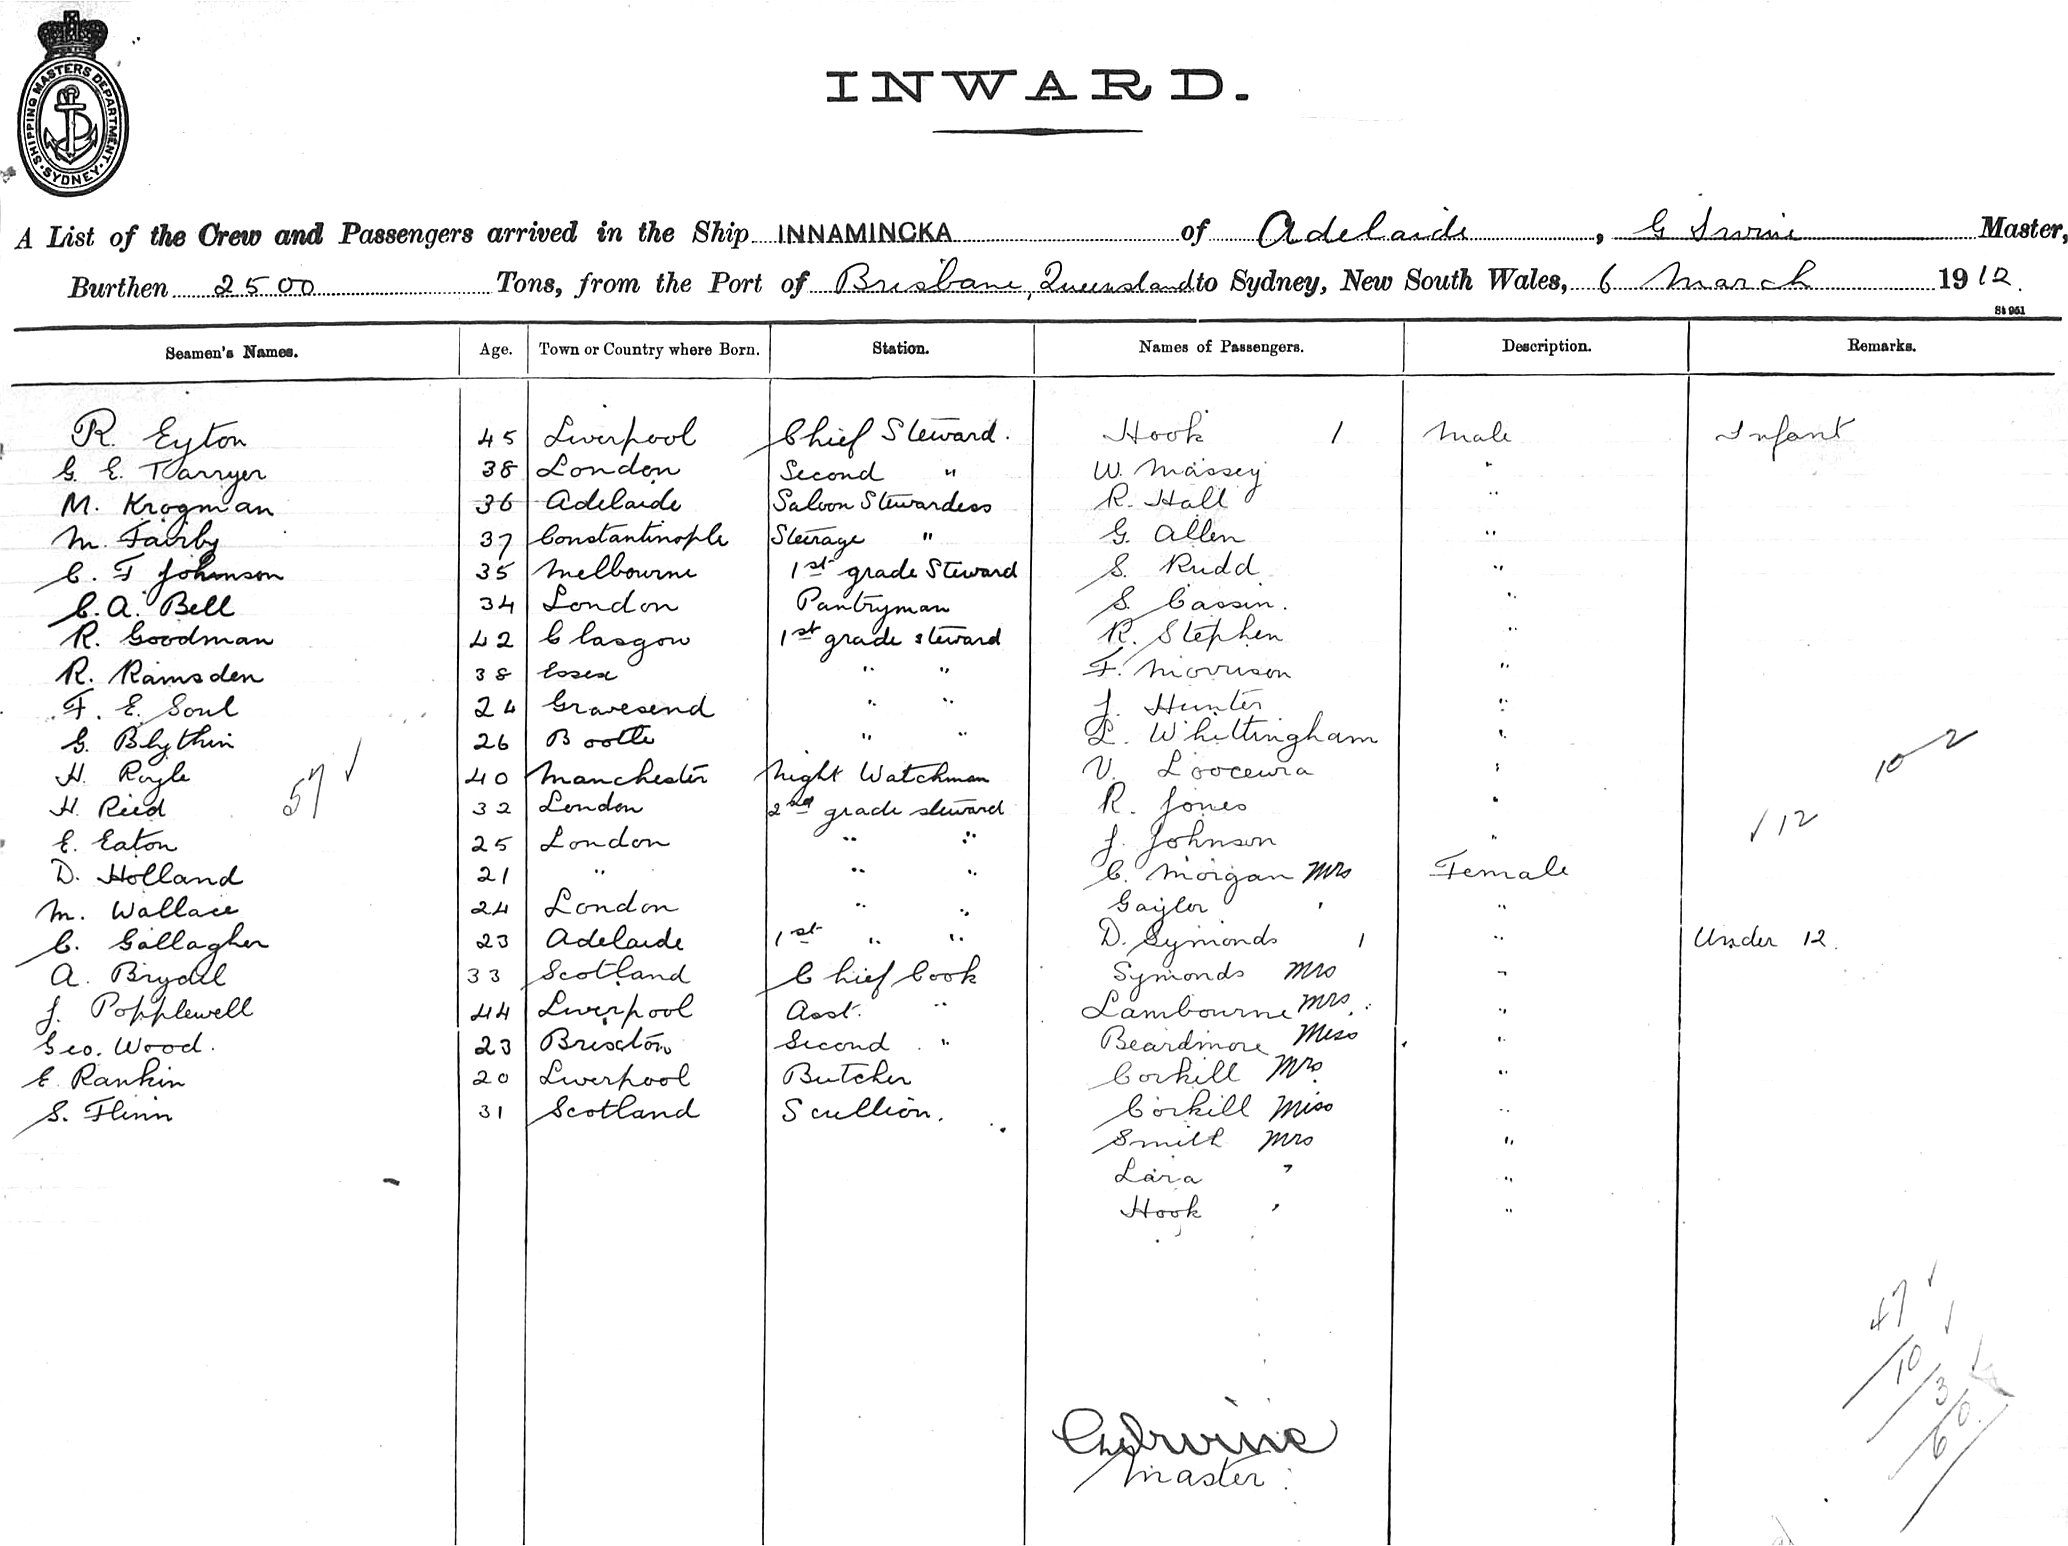 SHIPPING MASTERS DEPARTMENT · SYDNEY ·
INWARD.
A List of the Crew and Passengers arrived in the Ship INNAMINCKA of Adelaide, G Irvine Master,
Burthen 2500 Tons, from the Port of Brisbane, Queensland to Sydney, New South Wales, 6 March 1912.
St 951
Seamen's Names. Age. Town or Country where Born. Station. Names of Passengers. Description. Remarks.
R. Eyton 45 Liverpool Chief Steward. Hook 1 Male Infant
G. E. Tarryer 38 London Second " W. Massey "
M. Krogman 36 Adelaide Saloon Stewardess R. Hall "
M. Fairby 37 Constantinople Steerage " G. Allen "
C. F Johnson 35 Melbourne 1st grade Steward S. Rudd "
C. A. Bell 34 London Pantryman S. Cassin. "
R. Goodman 42 Glasgow 1st grade steward R. Stephen "
R. Ramsden 38 Essex " " F. Morrison "
F. E. Soul 24 Gravesend " " J. Hunter "
G. Blythin 26 Bootle " " L. Whittingham "
H. Royle 57 40 Manchester Night Watchman V. "  102
H. Reed 32 London 2nd grade steward R. Jones " 12
E. Eaton 25 London " " J. Johnson "
D. Holland 21 " " " C. Morgan Mrs Female
M. Wallace 24 London " " Gayler " "
C. Gallagher 23 Adelaide 1st " " D. Symonds 1 " Under 12.
A. Brydil 33 Scotland Chief Cook Symonds Mrs "
J. Popplewell 44 Liverpool Asst. " Lambourne Mrs. "
Geo. Wood. 23 Brixton Second " Beardmore Miss "
E. Rankin 20 Liverpool Butcher Corkill Mrs "
S. Flinn 31 Scotland Scullion. Corkill Miss "
Smith Mrs "
Lara " "
Hook " "
47
10
3
60
Irvine
Master